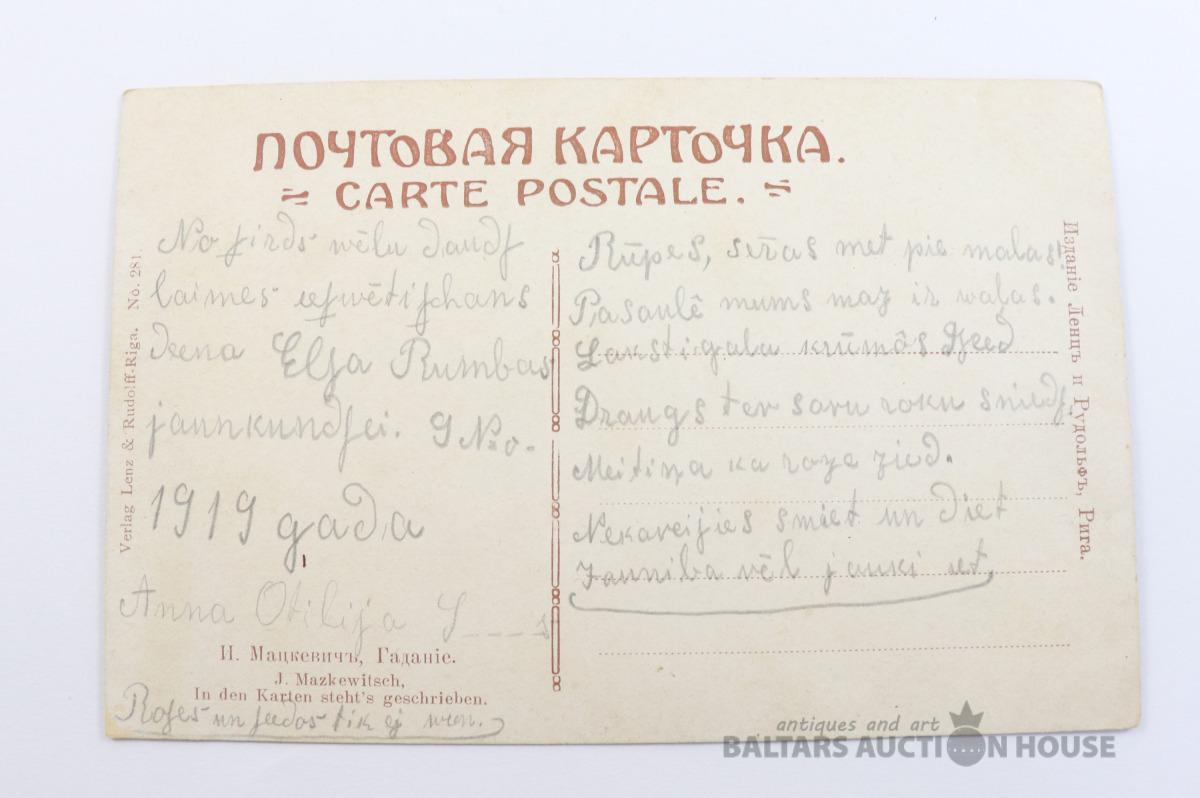 ПОЧТОВАЯ КАРТОЧКА.
CARTE POSTALE.
No sirds wēlu daudf
laimes eeswētischans
deena Elsa Rumbas
jaunkundsei. 9 No.
1919 gada
Anna Otilija S---s
И. Мацкевичъ, Гаданіе.
J. Mazkewitsch,
In den Karten steht's geschrieben.
Roses un seedos tik ej
Verlag Lenz & Rudolff-Riga. No. 281.
Rūpes, sēras met pie malas!
Pasaulē mums maz ir walas.
Lakstigala krūmōs dzeed
Draugs tev savu roku sniedz.
Meitiņa ka roze zied.
Nekaveijies smiet un diet
Jauniba vēl jauki iet.
Изданіе Ленцъ и Рудольфъ, Рига.
antiques and art
BALTARS AUCTION HOUSE